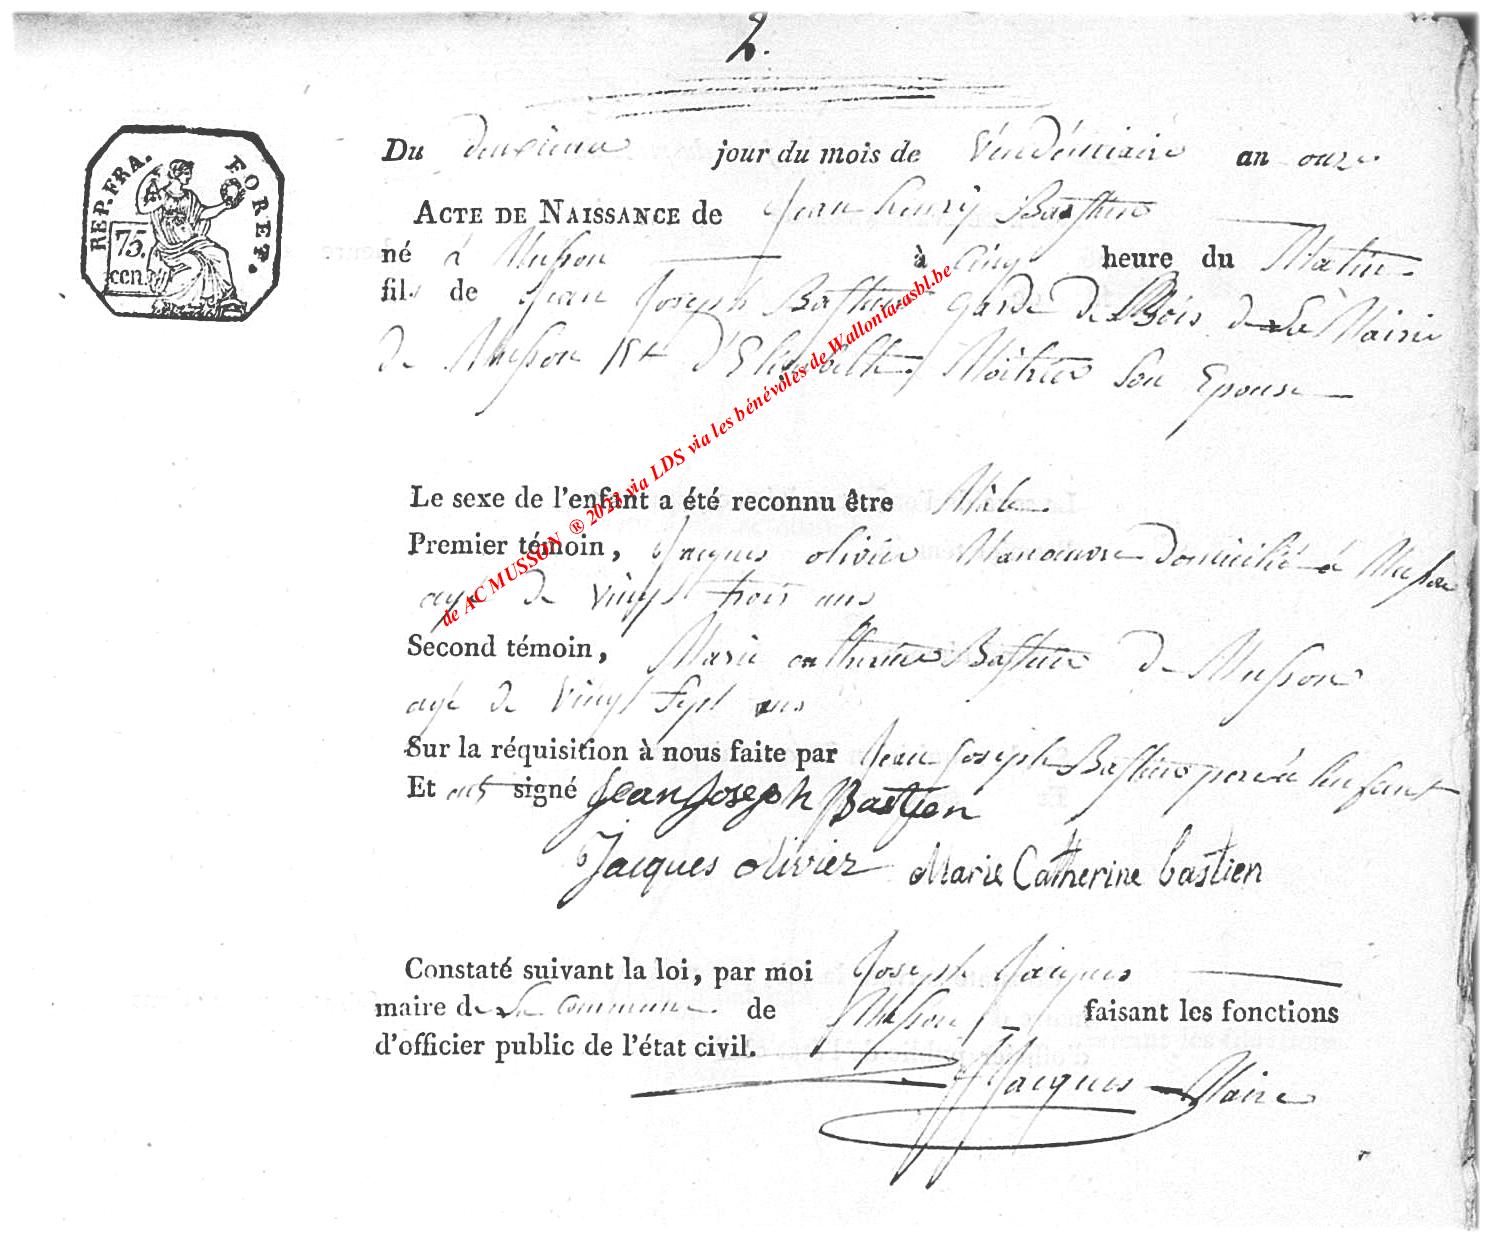 2.
REP. FRA. FORET.
75.
cen
Du deuxieme jour du mois de Vendémiaire an onze
ACTE DE NAISSANCE de Jean henry Bastien
né à Musson à Cinq heure du Matin
fils de Jean Joseph Bastien garde de Bois de La Mairie
de Musson Et d'Elisabeth Moitrie Son Epouse
Le sexe de l'enfant a été reconnu être Mâle
Premier témoin, Jacques olivier Manoeuvre domicilié à Musson
agé de vingt trois ans
Second témoin, Marie catherine Bastien de Musson
agé de vingt sept ans
Sur la réquisition à nous faite par Jean Joseph Bastien pere de l'enfant
Et ont signé Jean Joseph Bastien
Jacques olivier Marie Catherine bastien
Constaté suivant la loi, par moi Joseph Jacques
maire de La Commune de Musson faisant les fonctions
d'officier public de l'état civil.
JJacques Maire
de AC MUSSON ® 2023 via LDS via les bénévoles de Wallonia-asbl.be